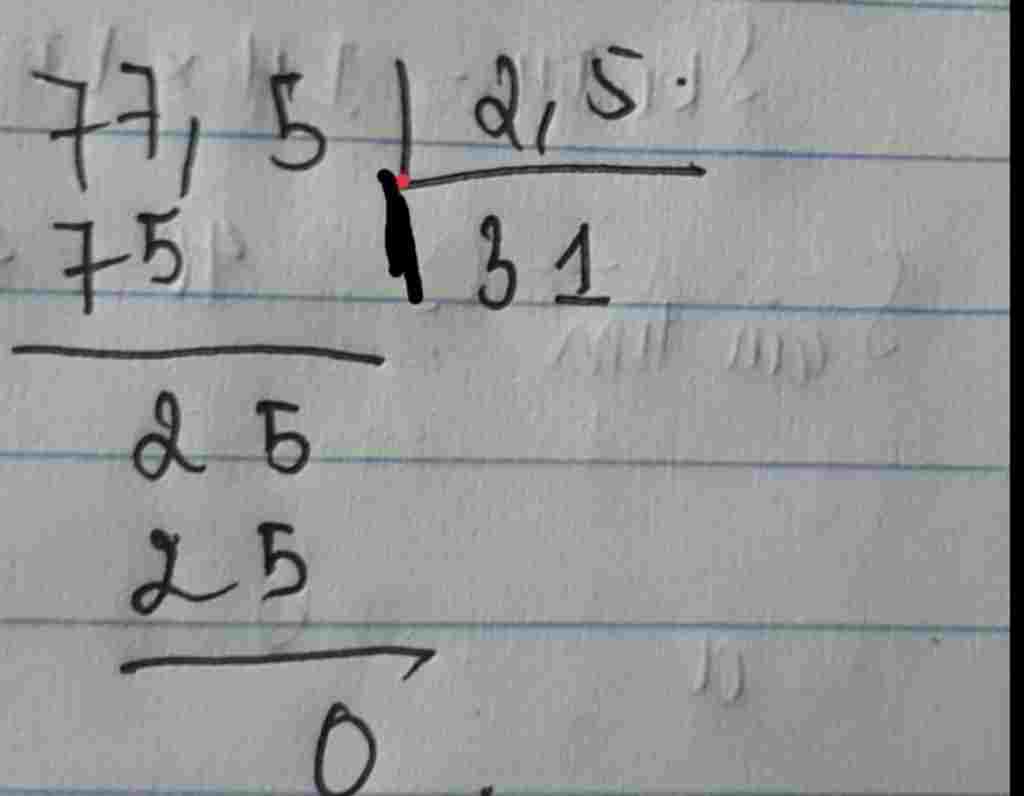 77,5 | 2,5
75 | 31
25
25
0